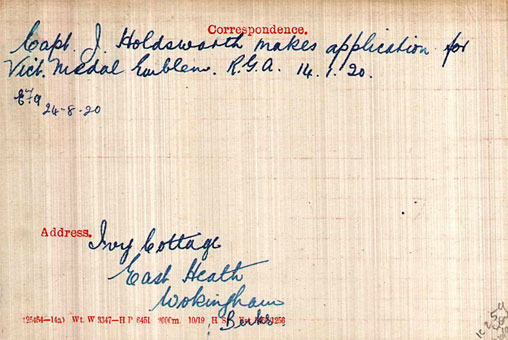 Correspondence.
Capt. J. Holdsworth makes application for
Vict. Medal Emblem. R.G.A. 14.1.20.
24-8-20
Address.
Ivy Cottage
East Heath
Wokingham
Berks.
(25454—14a) Wt. W 3347—H P 6451 10/19 H. S.